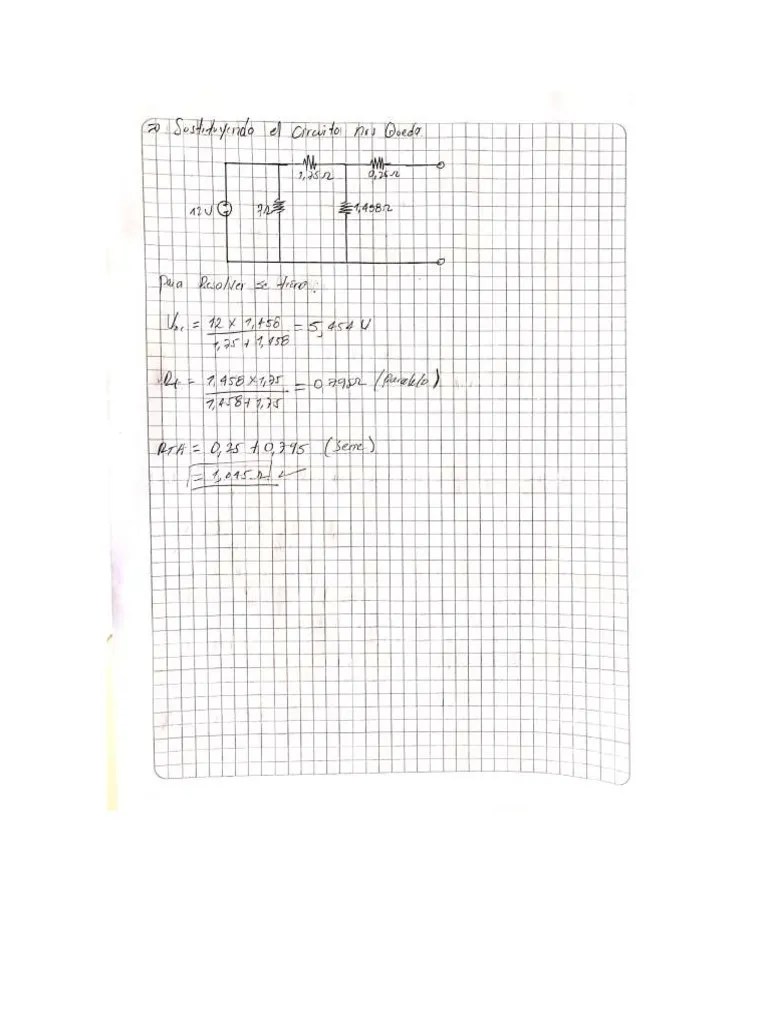 ⇒ Sustituyendo el Circuito nos Queda
1,75Ω 0,25Ω
12V 7Ω 1,458Ω
para Resolver se tiene:
= 12 x 1,458 = 5,454 V
1,75 + 1,458
= 1,458 x 1,75 = 0,795Ω (paralelo)
1,458 + 1,75
RTH = 0,25 + 0,795 (serie)
= 1,045Ω ✓